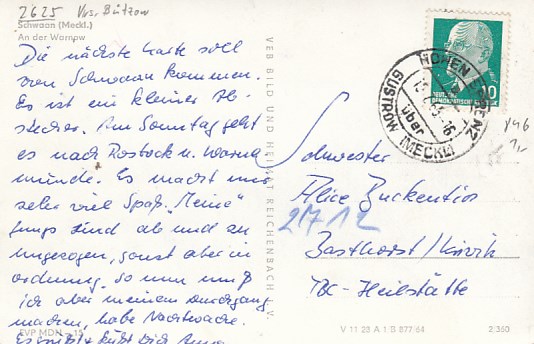 2625 Krs. Bützow
Schwaan (Meckl.)
An der Warnow
Die nächste Karte soll
von Schwaan kommen.
Es ist ein kleiner Ab-
stecher. Am Sonntag geht
es nach Rostock u. Warne
münde. Es macht mir
sehr viel Spaß. "Meine"
Jungs sind ab und zu
ungezogen, sonst aber in
Ordnung. So nun muß
ich aber meinen Durchgang
machen, habe Nachtwache.
Es grüßt u. küßt Dich Anna
EVP MDN
VEB BILD UND HEIMAT REICHENBACH I. V.
HOHEN SPRENZ
über
GÜSTROW (MECKL)
20
DEUTSCHE
DEMOKRATISCHE
Schwester
Alice Buckentin
2712
Basthorst/Krivitz
TBC-Heilstätte
V 11 28 A 1 B 877 64
2 350